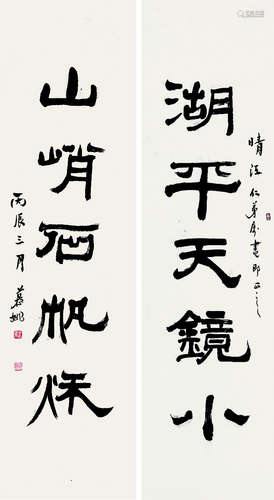 湖平天鏡小
仁弟屬書即正之
山峭石帆秌
丙辰三月